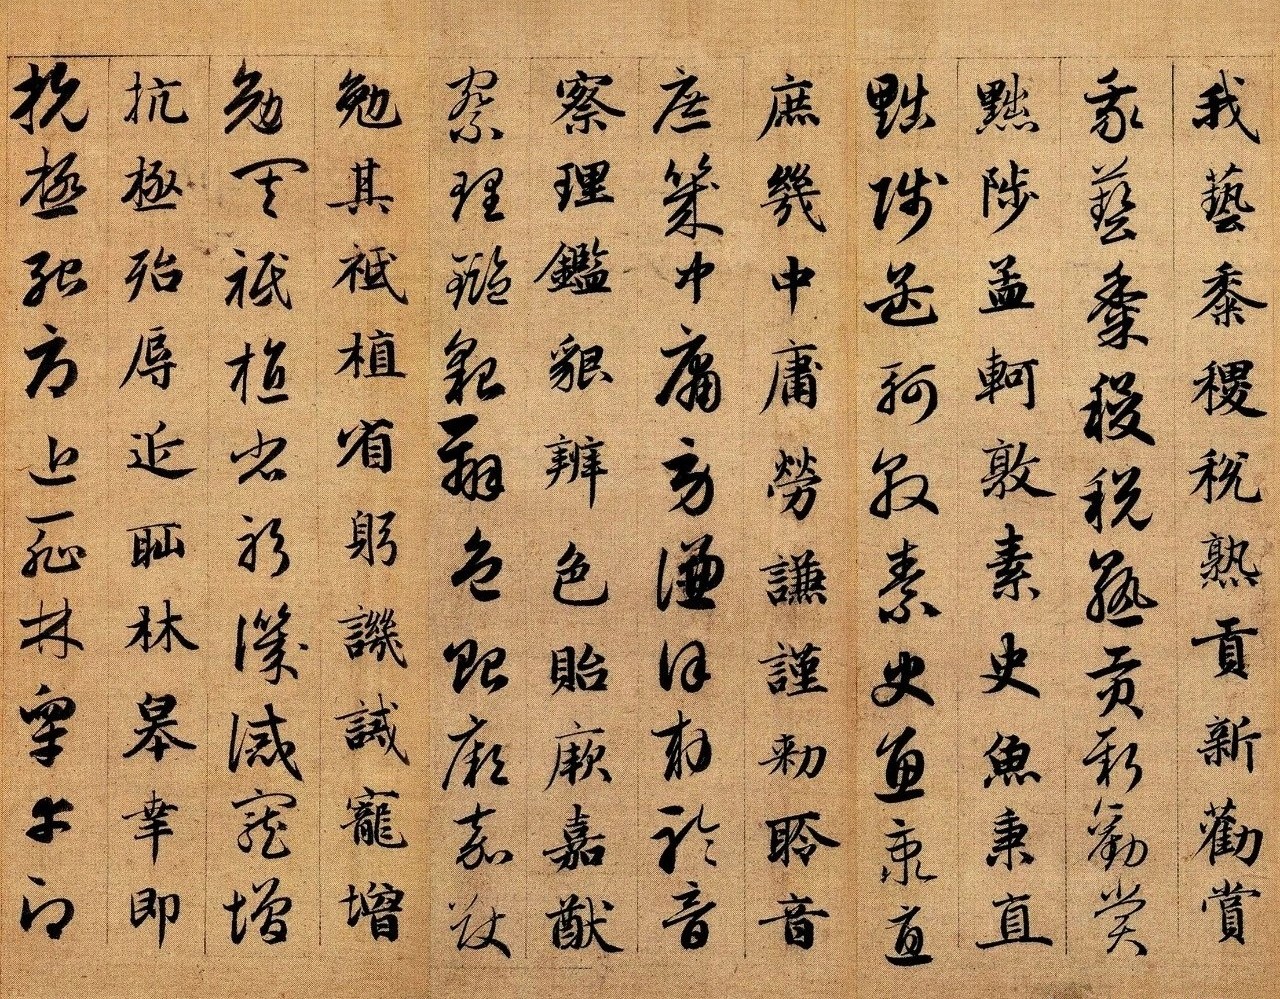 我藝黍稷稅熟貢新勸賞
我藝黍稷稅熟貢新勸賞
黜陟孟軻敦素史魚秉直
黜陟孟軻敦素史魚秉直
庶幾中庸勞謙謹勑聆音
庶幾中庸勞謙謹勑聆音
察理鑑貌辨色貽厥嘉猷
察理鑑貌辨色貽厥嘉猷
勉其祗植省躬譏誡寵增
勉其祗植省躬譏誡寵增
抗極殆辱近耻林皋幸即
抗極殆辱近耻林皋幸即